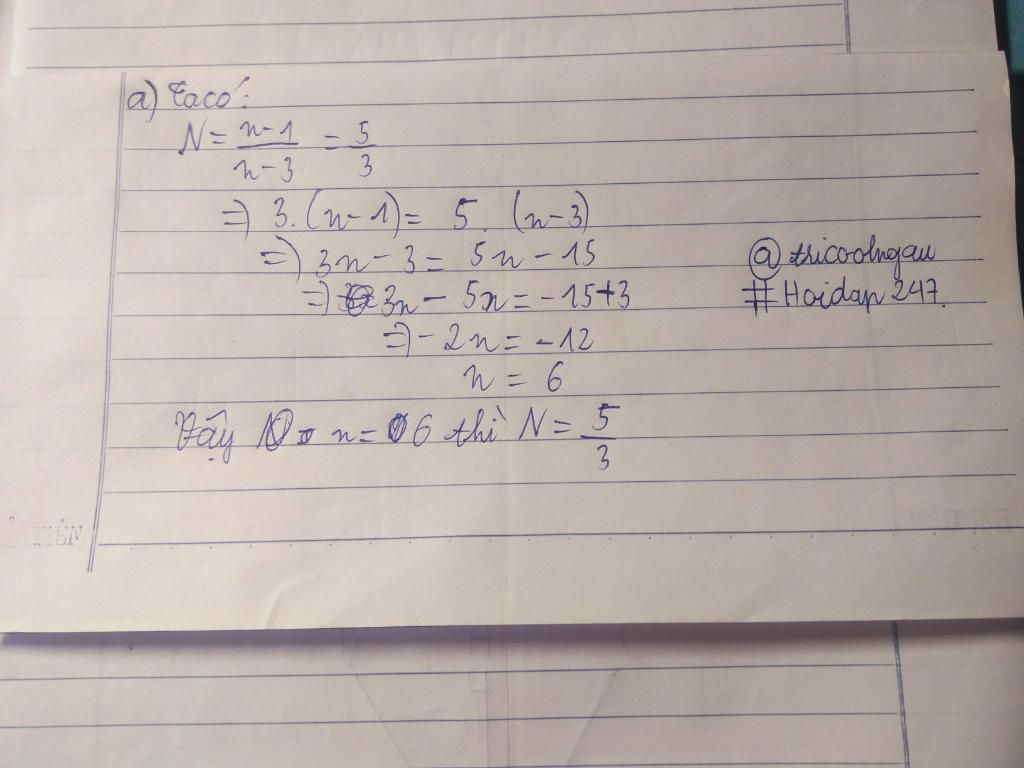 a) Ta có:
N = n-1/n-3 = 5/3
=> 3. (n-1) = 5. (n-3)
=> 3n - 3 = 5n - 15
=> 3n - 5n = -15+3
=> -2n = -12
n = 6
Vậy n = 6 thì N = 5/3
@ thicoolngau
# Hoidap 247.